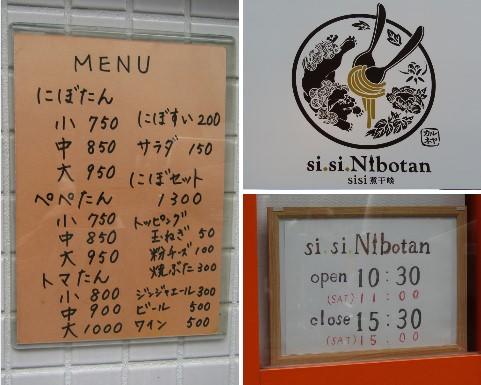 MENU
にぼたん
小 750
中 850
大 950
ぺぺたん
小 750
中 850
大 950
トマたん
小 800
中 900
大 1000
にぼすい 200
サラダ 150
にぼセット
1300
トッピング
玉ねぎ 50
粉チーズ 100
焼ぶた 300
ジンジャエール 300
ビール 500
ワイン 500
カル
ネヤ
si.si.Nibotan
sisi 煮干啖
si.si.Nibotan
open 10:30
(SAT) 11:00
close 15:30
(SAT) 15:00